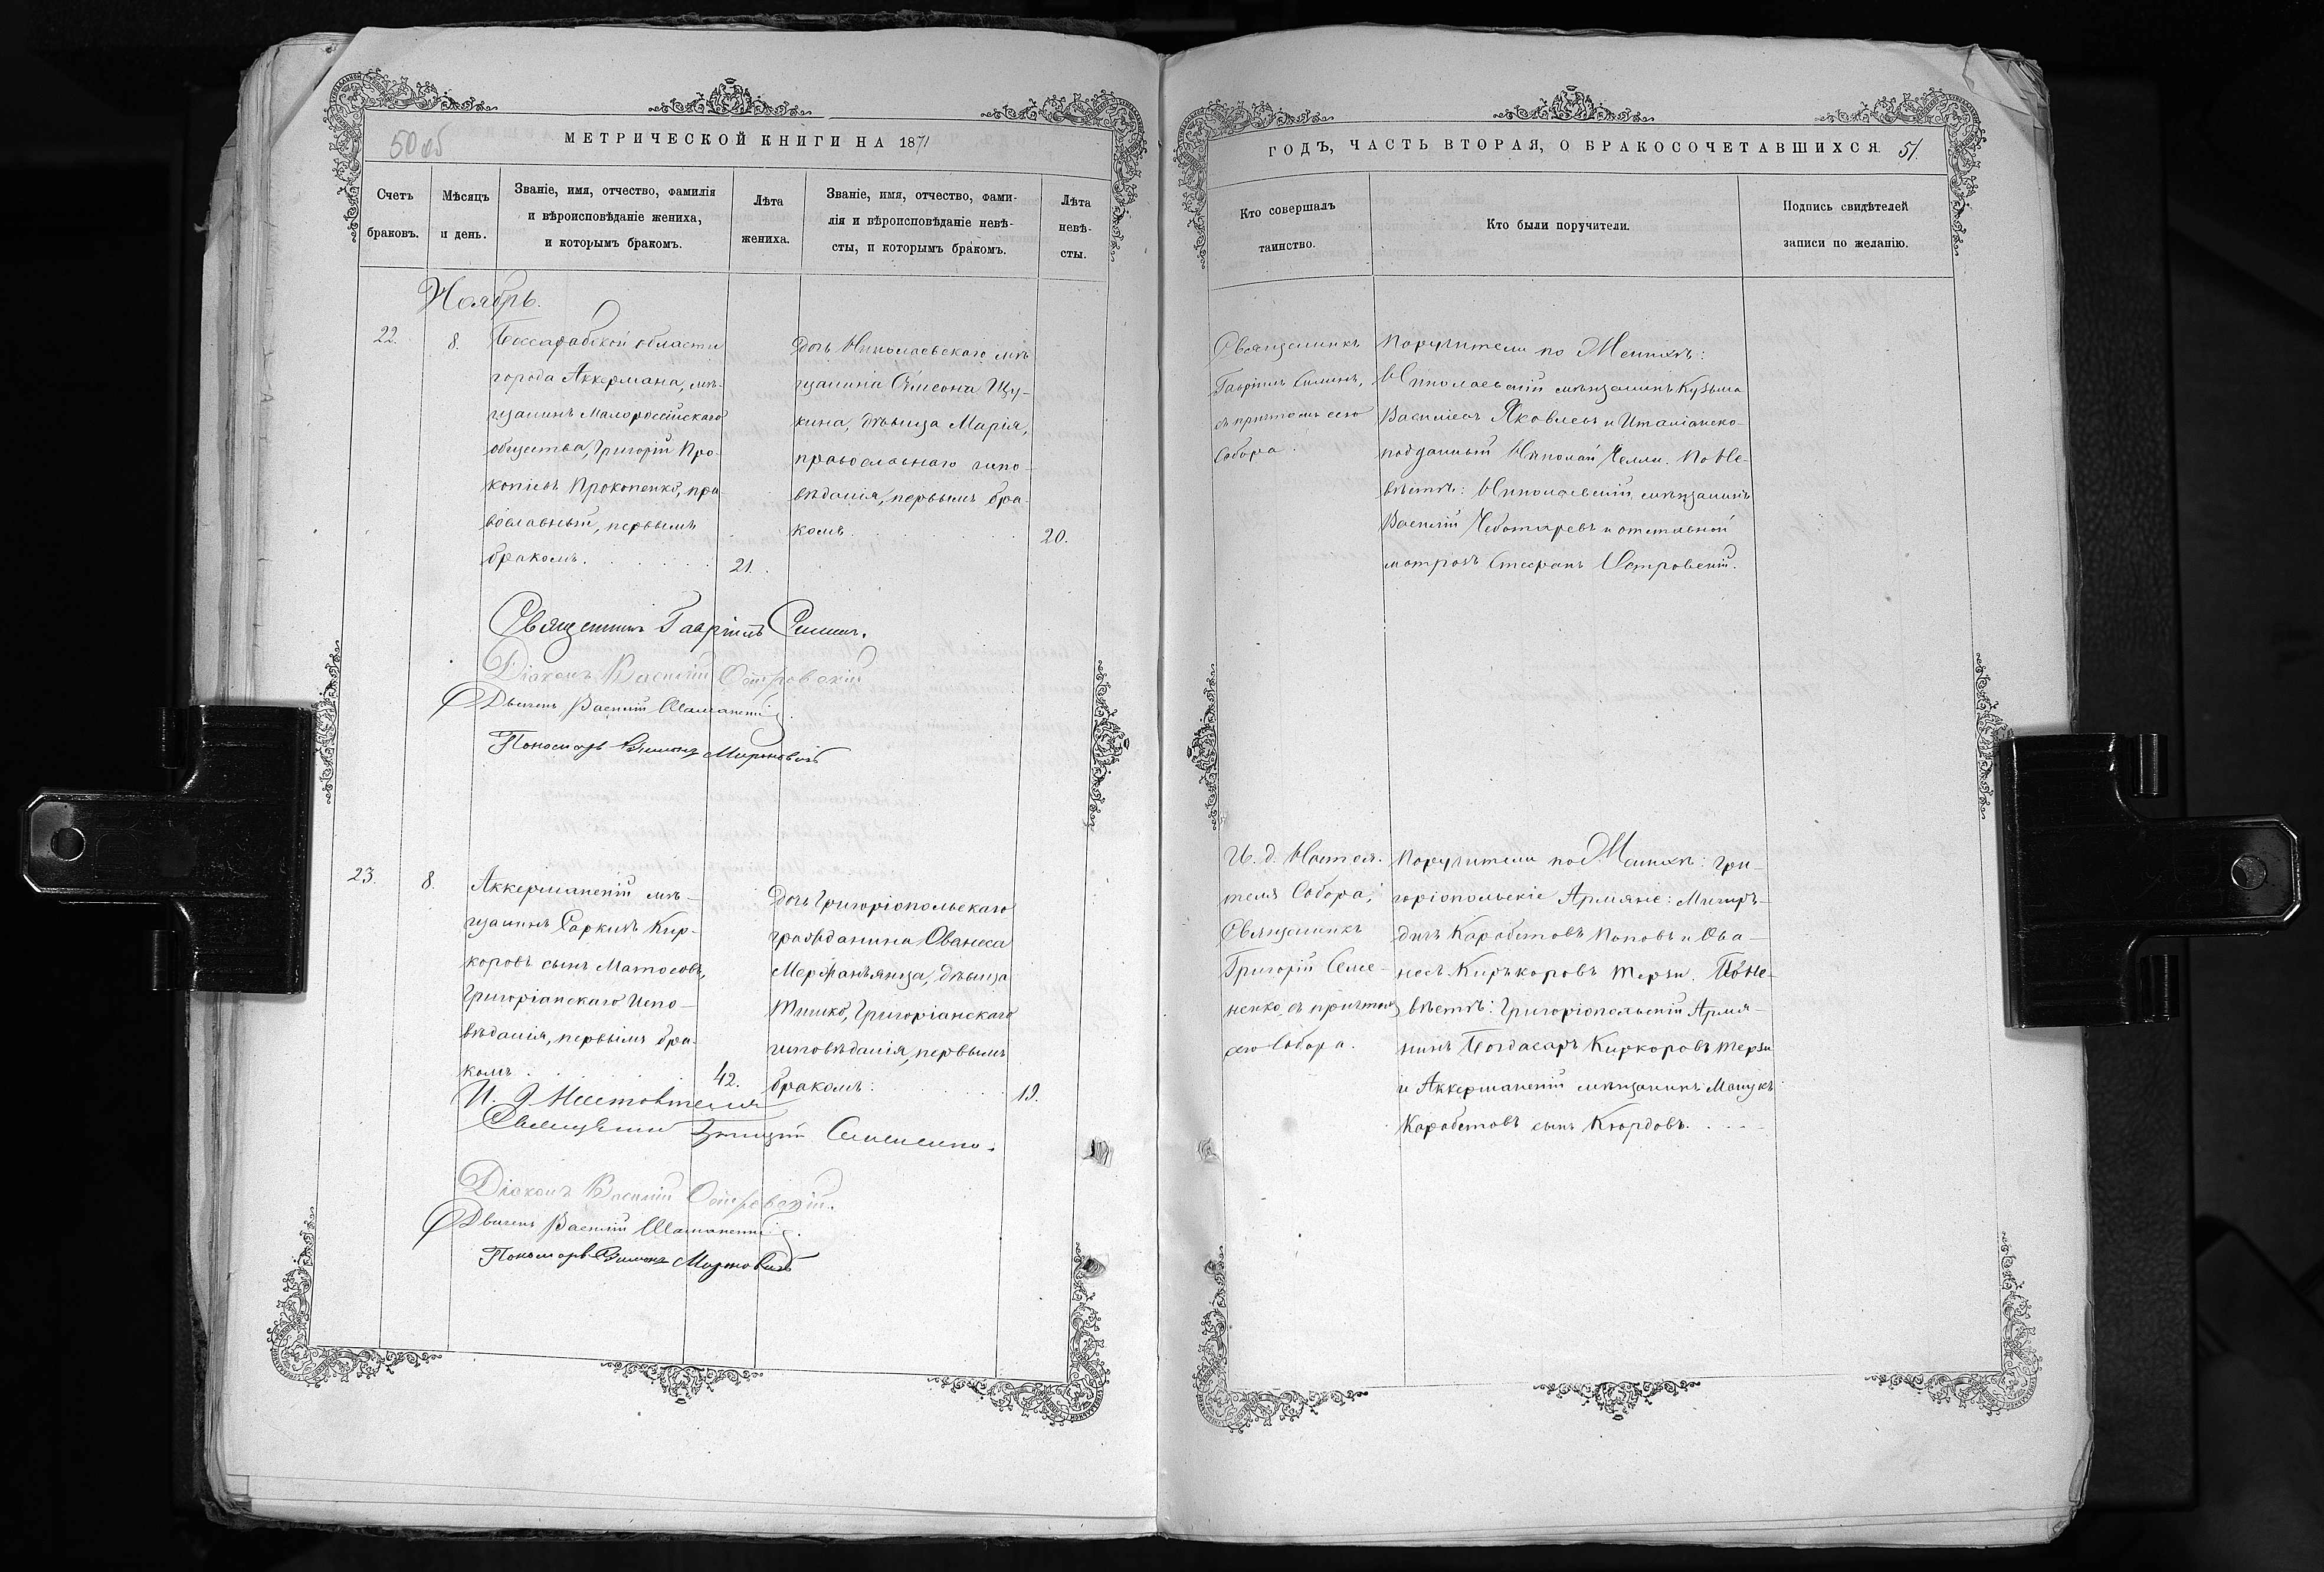 50 об
МЕТРИЧЕСКОЙ КНИГИ НА 1871
Счетъ браковъ.
Мѣсяцъ и день.
Званіе, имя, отчество, фамилія
и вѣроисповѣданіе жениха,
и которымъ бракомъ.
Лѣта
жениха.
Званіе, имя, отчество, фами-
лія и вѣроисповѣданіе невѣ-
сты, и которымъ бракомъ.
Лѣта
невѣ-
сты.
Ноябрь.
22.
8.
Бессарабской области
города Аккермана, мѣ-
щанинъ Малороссійскаго
общества, Григорій Про-
копіевъ Прокопенко, пра-
вославный, первымъ
бракомъ.
21.
Дочь Николаевскаго мѣ-
щанина Симеона Щу-
кина, дѣвица Марія,
православнаго испо-
вѣданія, первымъ бра-
комъ.
20.
Священникъ Гавріилъ
Діаконъ Василій Островскій
Василій
Пономарь
23.
8.
Аккерманскій мѣ-
щанинъ Саркизъ Кир-
коровъ сынъ Матосовъ,
Григоріанскаго Испо-
вѣданія, первымъ бра-
комъ.
42.
Дочь Григоріопольскаго
гражданина Ованеса
дѣвица
Григоріанскаго
исповѣданія, первымъ
бракомъ.
19.
И. д. Настоятеля
Священникъ Григорій Семененко.
Діаконъ Василій Островскій.
Василій
Пономарь
ГОДЪ, ЧАСТЬ ВТОРАЯ, О БРАКОСОЧЕТАВШИХСЯ.
51.
Кто совершалъ
таинство.
Кто были поручители.
Подпись свидѣтелей
записи по желанію.
Священникъ
Гавріилъ
съ причтомъ сего
Собора.
Поручители по Женихѣ:
Николаевскій мѣщанинъ Кузьма
Василіевъ Яковлевъ и Италіанско-
подданный Николай Челли. По Не-
вѣстѣ: Николаевскій мѣщанинъ
Василій Чеботаревъ и отставной
матрозъ Стефанъ Островскій.
И. д. Настоя-
теля Собора,
Священникъ
Григорій Семе-
ненко, съ причтомъ
сего Собора.
Поручители по Женихѣ: Гри-
горіопольскіе Армяне: Мигыр-
дичъ Карабетовъ Поповъ и Ова-
несъ Киркоровъ Терзи. По Не-
вѣстѣ: Григоріопольскій Армя-
нинъ Богдасаръ Киркоровъ Терзи
и Аккерманскій мѣщанинъ Манукъ
Карабетовъ сынъ Кюрдовъ.